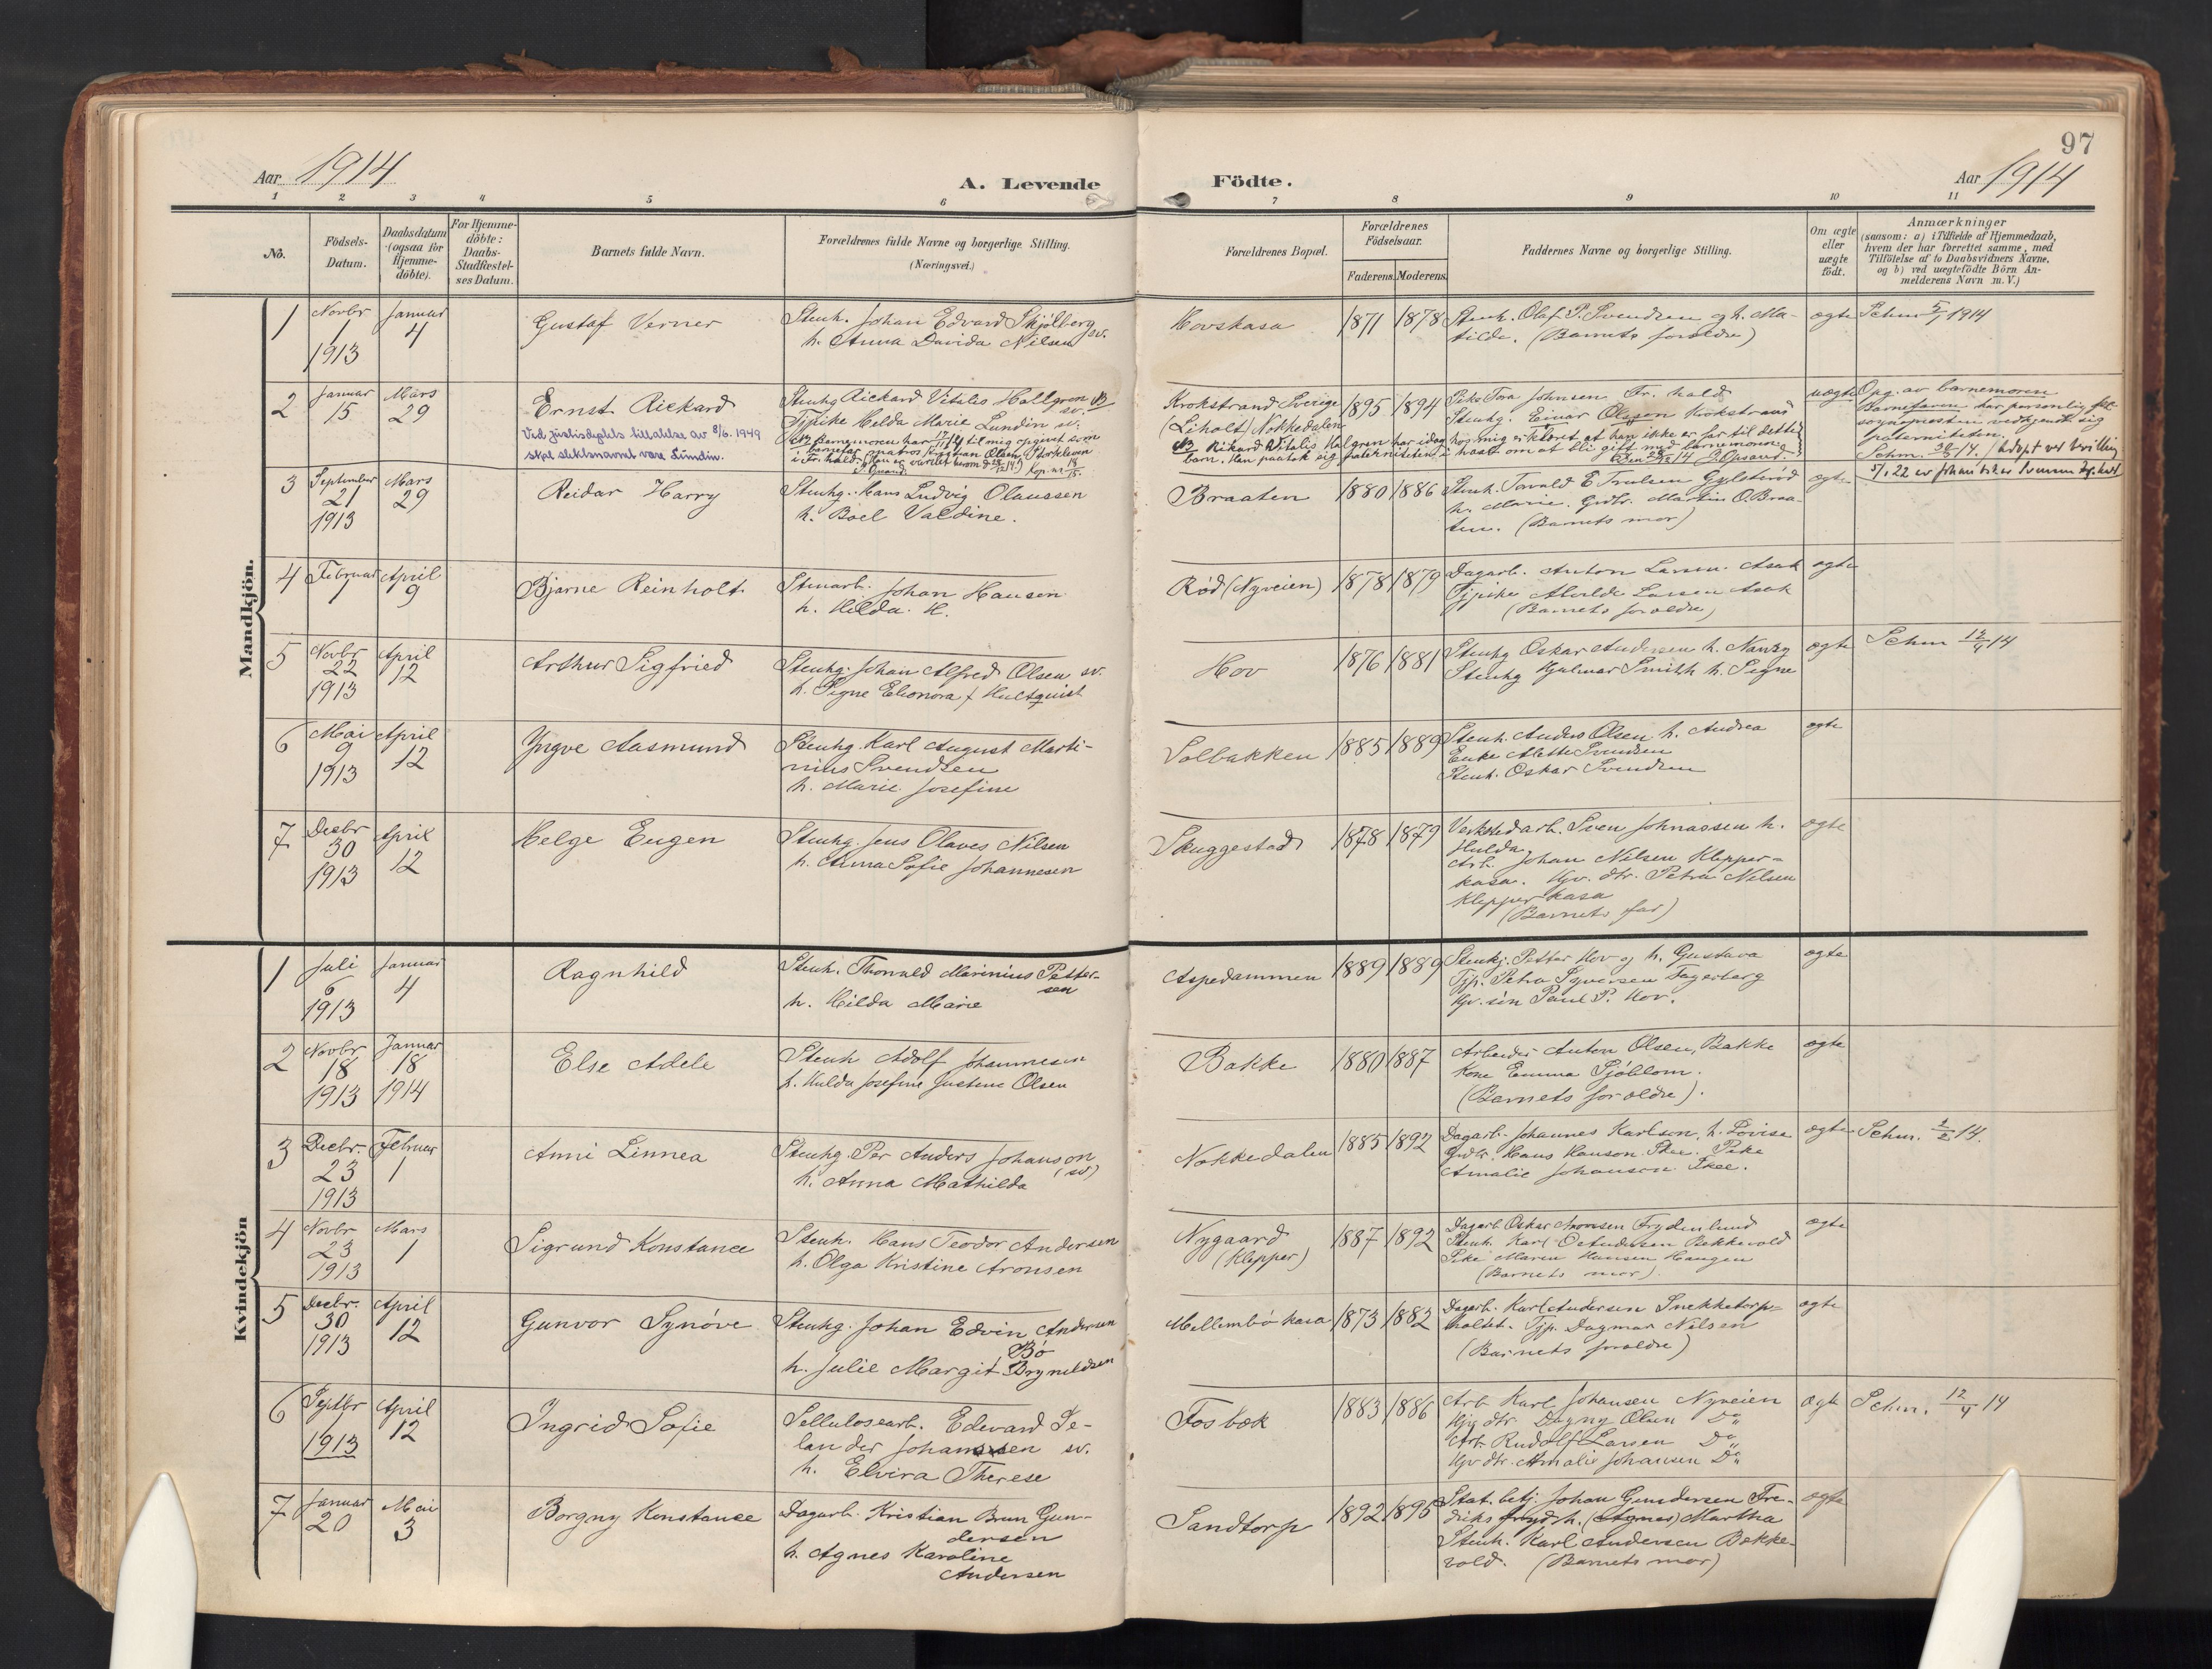 97
Aar 1914
A. Levende Födte.
Aar 1914
1 2 3 4 5 6 7 8 9 10 11
No.
Födsels-
Datum.
Daabsdatum
(ogsaa for
Hjemme-
döbte).
For Hjemme-
döbte:
Daabs-
Stadfæstel-
ses Datum.
Barnets fulde Navn.
Forældrenes fulde Navne og borgerlige Stilling.
(Næringsvei.)
Forældrenes Bopæl.
Forældrenes
Födselsaar.
Faderens. Moderens.
Faddernes Navne og borgerlige Stilling.
Om ægte
eller
uægte
födt.
Anmærkninger
(saasom: a) i Tilfælde af Hjemmedaab,
hvem der har forrettet samme, med
Tilföielse af to Daabsvidners Navne,
og b) ved uægtefödte Börn An-
melderens Navn m. V.)
Mandkjön.
1
Novbr
1
1913
Januar
4
Gustaf Verner
Stenh. Johan Edvard Skjølberg sv.
h. Anna Davida Nilsen
Hovskasa
1871 1878
Stenh. Olaf P. Svendsen og h. Ma-
tilde. (Barnets forældre)
ægte
Schm 5/1 1914
2
Januar
15
Mars
29
Ernst Rickard
Ved justisdeptets tillatelse av 8/6. 1949
skal slektsnavnet være Lundin.
Stenhg Rickard Vitilis Hallgren NB
sv.
Tjpike Helda Marie Lundin sv.
NB Barnemoren har 17/11 14 til mig opgivet som
barnefar matros Kristian Olsen, Storkleven
i Fr.hald.
Krokstrand Sverige
(Liholt) Nokkedalen
1895 1894
Pike Tora Johnsen Fr. hald
Stenhg. Einar Olsson Krokstrand
NB Rikard Vitalis Halgren har idag hos mig erklæret at han ikke er far til dette
barn. Han paatok sig paterniteten i haab om at bli gift med barnemoren.
uægte
Opg. av barnemoren
Barnefaren har personlig for
sognepresten vedkjendt sig
paterniteten.
3
September
21
1913
Mars
29
Reidar Harry
Stenhg. Hans Ludvig Olaussen
h. Boel Valdine.
Braaten
1880 1886
Stenh. Torvald E Trulsen Gylterød
h. Marie. Grdbr. Martin O. Braa-
ten. (Barnets mor)
ægte
4
Februar
1
April
9
Bjarne Reinholt
Stenarb. Johan Hansen
h. Hilda H.
Rød (Nyveien)
1878 1879
Dagarb. Anton Larsen Asak
Tjpike Alvilde Larsen Asak
(Barnets forældre)
ægte
5
Novbr
22
1913
April
12
Arthur Sigfried
Stenhg. Johan Alfred Olsen sv.
h. Signe Eleonora f Hultquist
Hov
1876 1881
Stenhg Oskar Andersen h. Nanzy
Stenhg Hjalmar Smith h. Signe
ægte
Schm 12/4 14
6
Mai
9
1913
April
12
Yngve Aasmund
Stenhg. Karl August Marti-
nius Svendsen
h. Marie Josefine
Solbakken
1885 1889
Stenh. Anders Olsen h. Andrea
Enke Alette Svendsen
Stenh. Oskar Svendsen
ægte
7
Decbr
30
1913
April
12
Helge Eugen
Stenhg. Jens Olaves Nilsen
h. Anna Sofie Johannesen
Skuggestad
1878 1879
Verkstedarb. Sven Johnassen h.
Hulda.
Arb. Johan Nilsen Klepper-
kasa. Gv. dtr. Petra Nilsen
Klepperkasa
(Barnets far)
ægte
Kvindekjön
1
Juli
6
1913
Januar
4
Ragnhild
Stenh. Thorvald Marinius Petter-
sen
h. Hilda Marie
Aspedammen
1889 1889
Stenhg. Petter Hov og h. Gustava
Tjp. Petra Syversen Fagerberg
Gv. søn Paul P. Hov.
ægte
2
Novbr
18
1913
Januar
18
1914
Else Adele
Stenh Adolf Johannesen
h. Hulda Josefine Justine Olsen
Bakke
1880 1887
Arbeider Anton Olsen, Bakke
Kone Emma Sjöblom.
(Barnets forældre).
ægte
3
Decbr.
23
1913
Februar
1
Anni Linnea
Stenhg. Per Anders Johanson
(sv)
h. Anna Mathilda
Nokkedalen
1885 1892
Dagarb. Johannes Karlson, h. Lovise
Grdbr. Hans Hanson Skee. Pike
Amalie Johanson Skee.
ægte
Schm. 1/2 14.
4
Novbr
23
1913
Mars
1
Sigrund Konstance
Stenh. Hans Teodor Andersen
h. Olga Kristine Aronsen
Nygaard
(Klepper)
1887 1892
Dagarb Oskar Aronsen Frydenlund
Stenh. Karl O Andersen Bekkevold
Pike Maren Hansen Haugen
(Barnets mor).
ægte
5
Decbr.
30
1913
April
12
Gunvor Synöve
Stenhg. Johan Edvin Andersen
Bö
h. Julie Margit Bryneldsen
Mellembökasa
1873 1882
Dagarb. Karl Andersen Snekketorp-
holtet. Tjp. Dagmar Nilsen
(Barnets forældre)
ægte
6
Septbr
1913
April
12
Ingrid Sofie
Sellulosearb. Edevard Se-
lander Johanssen sv.
h. Elvira Therese
Fosbæk
1883 1886
Arb Karl Johansen Nyveien
Gv dtr. Dagny Olsen Do
Arb. Rudolf Larsen Do
Gv dtr. Amalie Johansen Do
ægte
Schm. 12/4 14
7
Januar
20
Mai
3
Borgny Konstance
Dagarb. Kristian Brun Gun-
dersen
h. Agnes Karoline
Andersen
Sandtorp
1892 1895
Stat. betj. Johan Gundersen Fre-
driks h. (Agnes) Martha
Stenh. Karl Andersen Bekke-
vold. (Barnets mor)
ægte